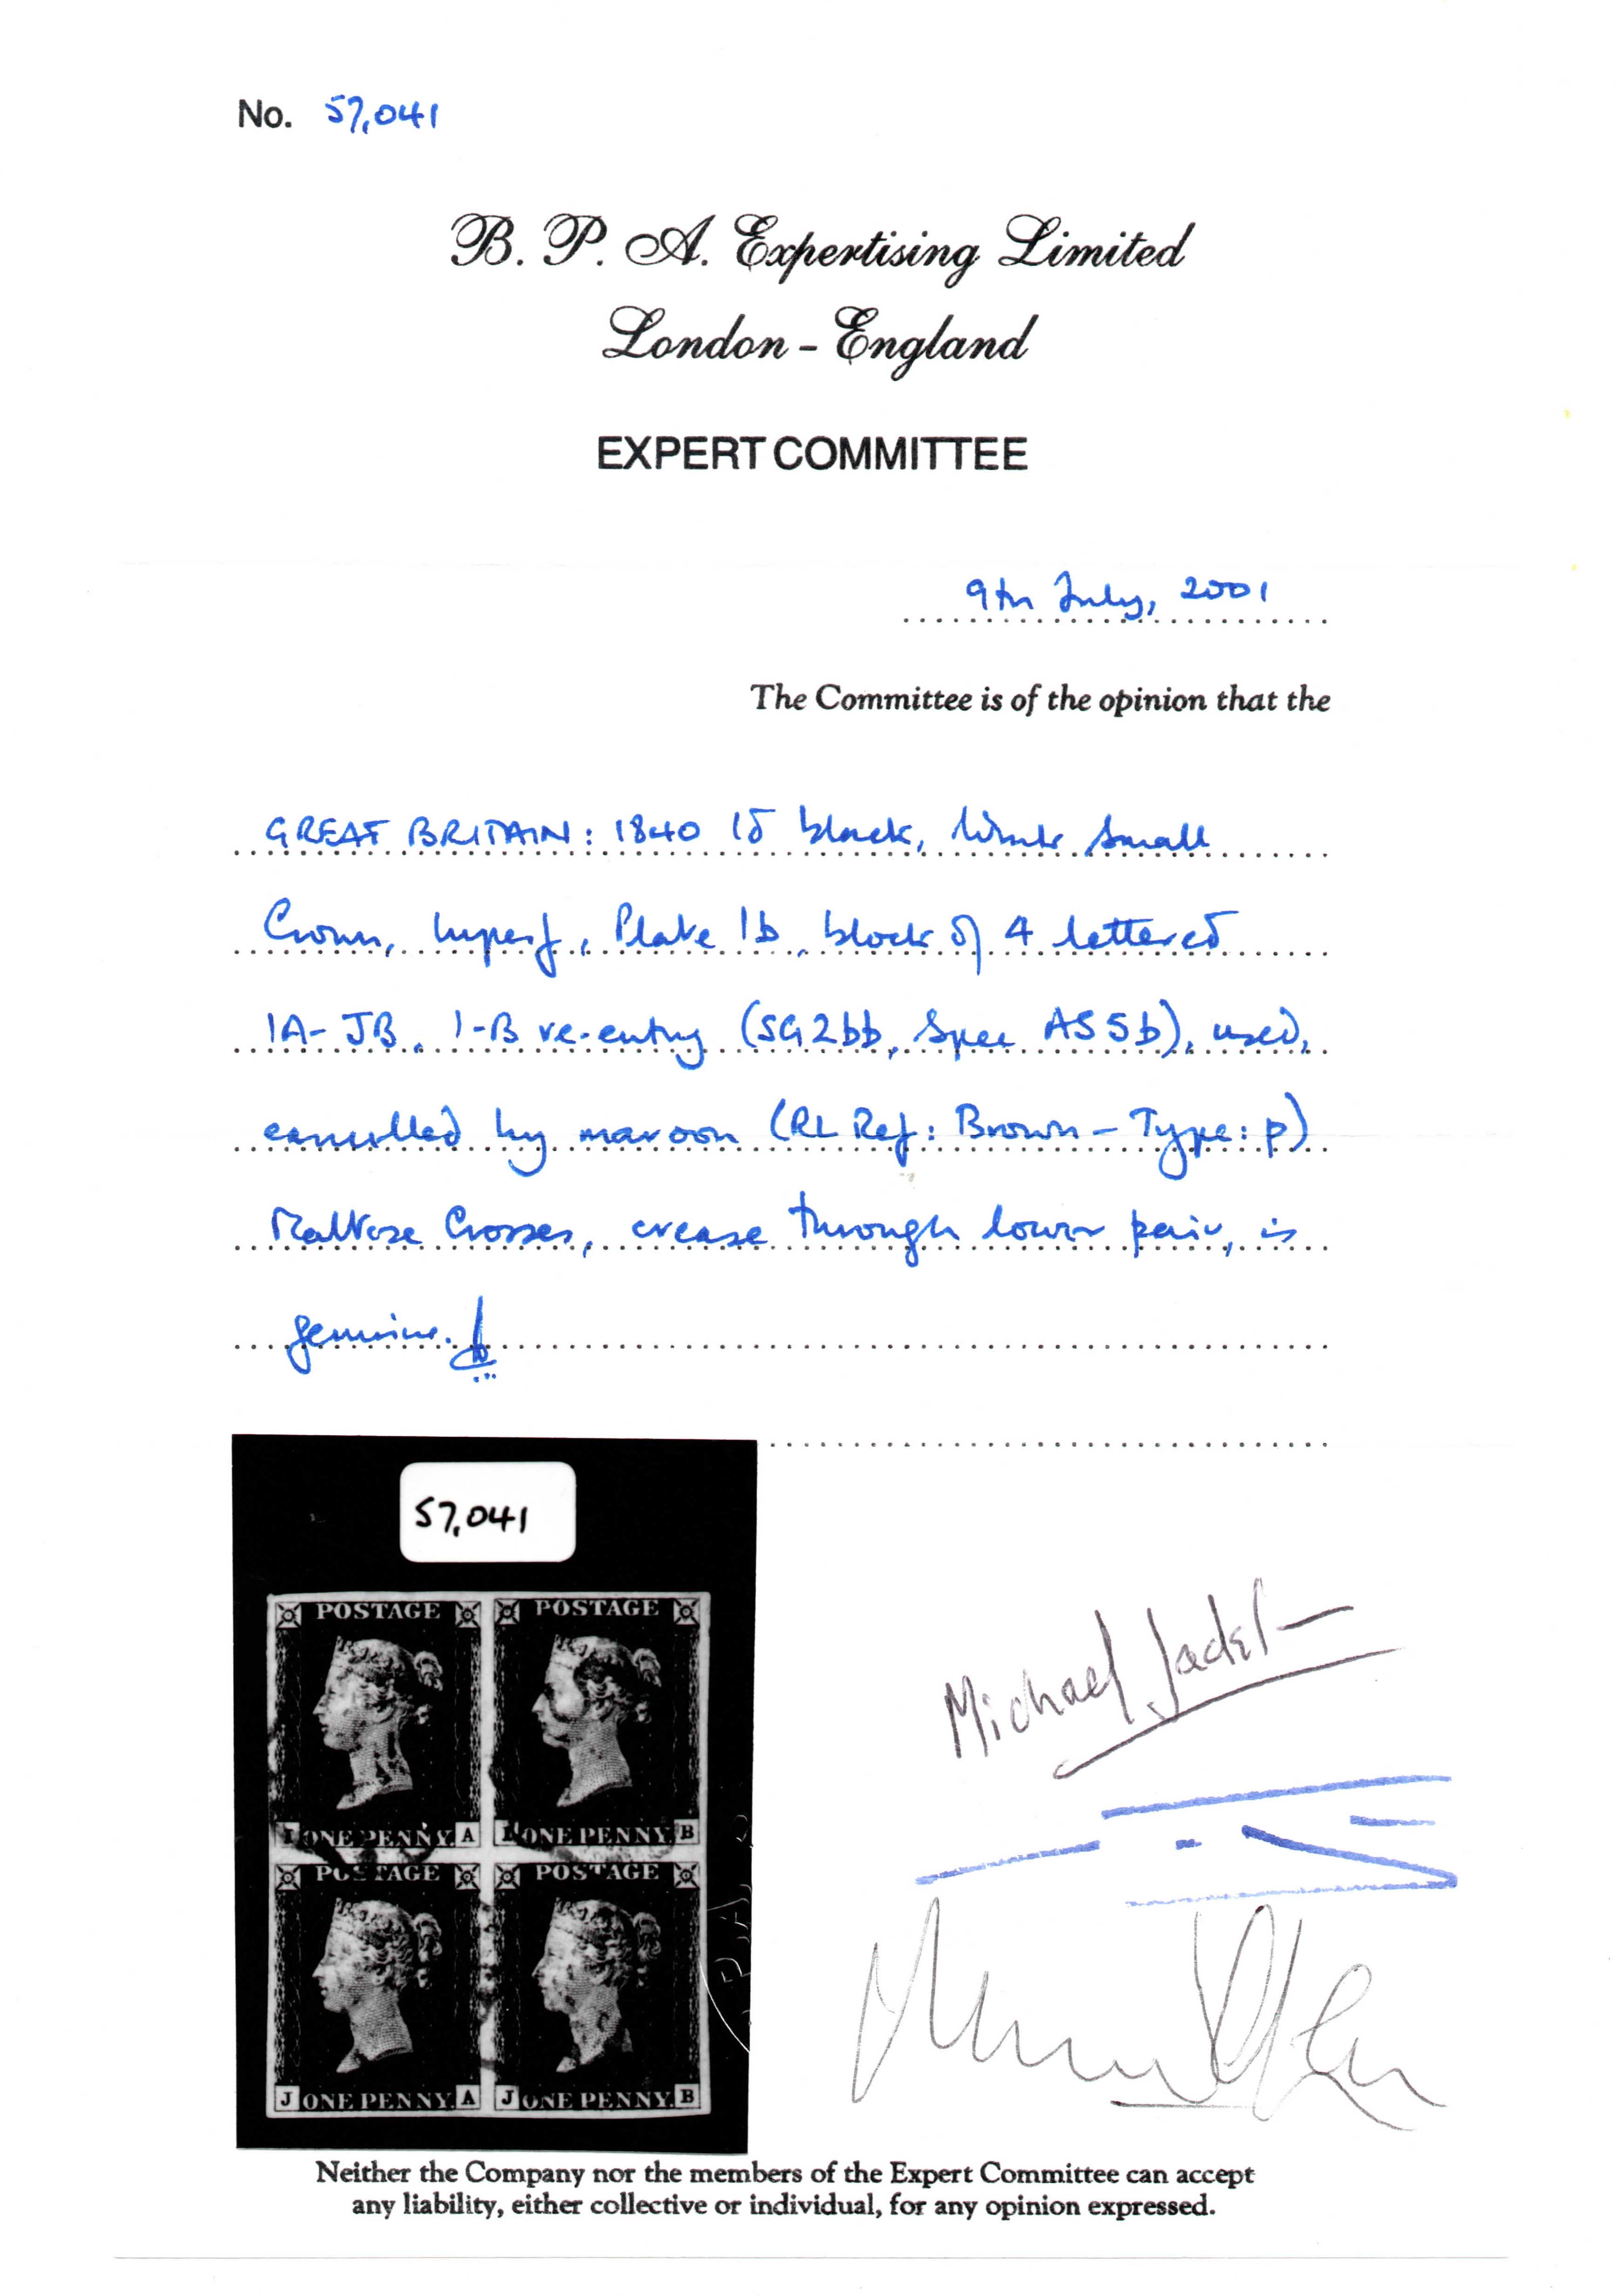 No. 57,041
B. P. A. Expertising Limited
London - England
EXPERT COMMITTEE
9th July, 2001
The Committee is of the opinion that the
GREAT BRITAIN: 1840 1d black, Wmk Small
Crown, Imperf, Plate 1b, block of 4 lettered
IA-JB, I-B re-entry (SG2bb, Spec AS5b), used,
cancelled by maroon (RL Ref: Brown - Type: p)
Maltese Crosses, crease through lower pair, is
genuine.
57,041
POSTAGE POSTAGE
I ONE PENNY. A I ONE PENNY. B
POSTAGE POSTAGE
J ONE PENNY. A J ONE PENNY. B
Michael
Neither the Company nor the members of the Expert Committee can accept
any liability, either collective or individual, for any opinion expressed.